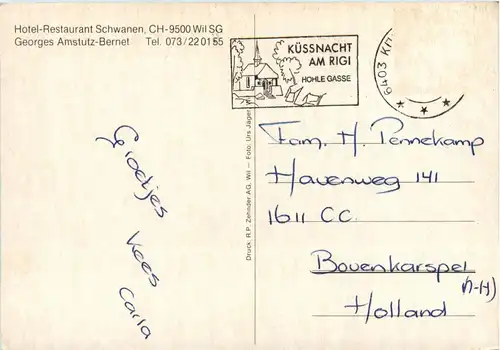 Hotel-Restaurant Schwanen, CH-9500 Wil SG
Georges Amstutz-Bernet Tel. 073/220155
KÜSSNACHT
AM RIGI
HOHLE GASSE
6403
Groetjes
Kees
Carla
Druck: R.P. Zehnder AG, Wil — Foto: Urs Jäger
Fam. H. Pennekamp
Havenweg 141
1611 CC.
Bovenkarspel
(N-H)
Holland